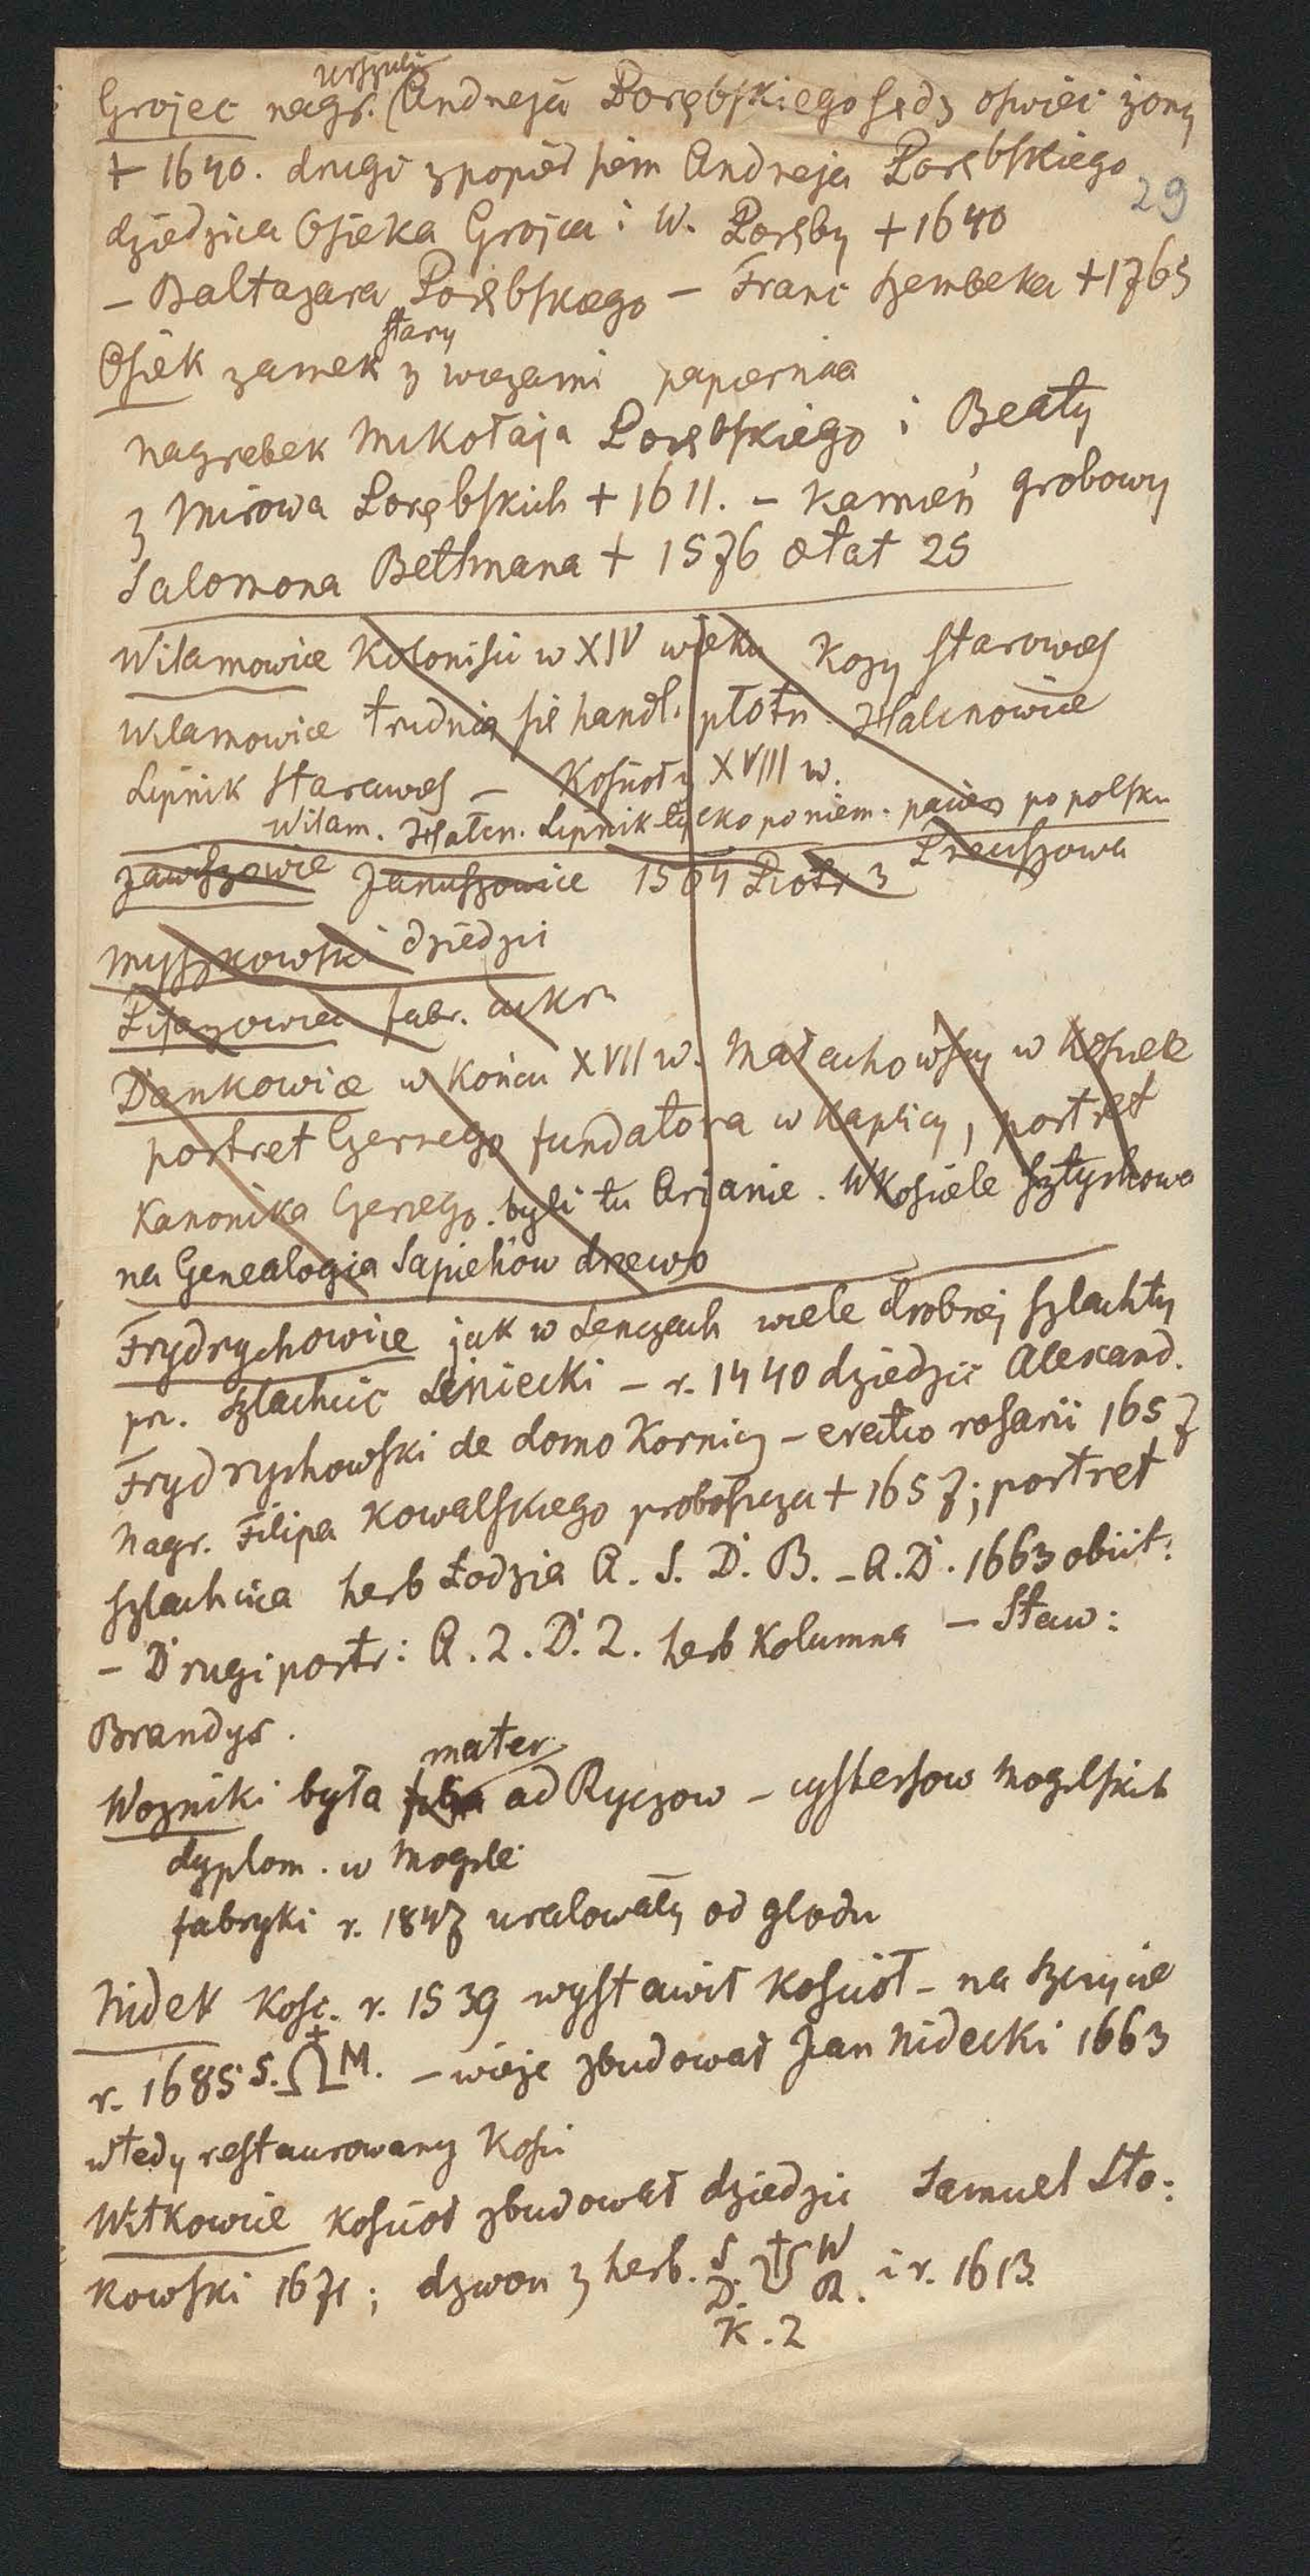 Urszuli
Grojec nagr. Andrzeja Porębskiego sędz oswiec żony
+ 1640. drugi z popier siem Andrzeja Porębskiego
29
dziedzica Osieka Grojca i W. Poręby + 1640
– Baltazara Porębskiego – Franc Szembeka + 1765
stary
Osiek zamek z wiezami papiernia
nagrobek Mikołaja Porębskiego i Beaty
z Mirowa Porębskich + 1611. – Kamień grobowy
Salomona Bethmana + 1576 ætat 25
Wilamowice Kolonisci w XIV wieku Kozy Starawieś
Wilamowice trudnią się handl. płotn. Halcnowice
Lipnik Starawieś – Koscioły XVIII w.
Wilam. Halcn. Lipnik tylko po niem. pacierz po polsku
Zawiszowice Januszowice 1564 Piotr z Przeciszowa
Myszkowski dziedzic
Pisarzowice fabr. cukru
Dankowice w końcu XVII w. Małachowscy w Kosciele
portret Czernego fundatora w Kaplicy, portret
Kanonika Czernego. byli tu Arjanie. W Kosciele sztychowa
na Genealogia Sapiehów drzewo
Frydrychowice jak w Lenczach wiele drobnej szlachty
pr. szlachcic Liniecki – r. 1440 dziedzic Alexand.
Frydrychowski de domo Kornicz – erectio rosarii 1657
Nagr. Filipa Kowalskiego proboszcza + 1657; portret
szlachcica herb Łodzia A. S. D. B. – A. D. 1663 obiit:
– Drugi portr: A. Z. D. Z. herb Kolumna – Staw:
Brandys.
mater
Wozniki była filia ad Ryczow – cystersow Mogilskich
dyplom. w Mogile
fabryki r. 1847 uratowały od glodu
Nidek Kośc. r. 1539 wystawił Kościoł – na szczycie
r. 1685 S. M. – wieże zbudował Jan Nidecki 1663
wtedy restaurowany Kośc
Witkowice Kościoł zbudował dziedzic Samuel Sło:
kowski 1671; dzwon z herb. S. W i r. 1613.
D. R.
K. Z